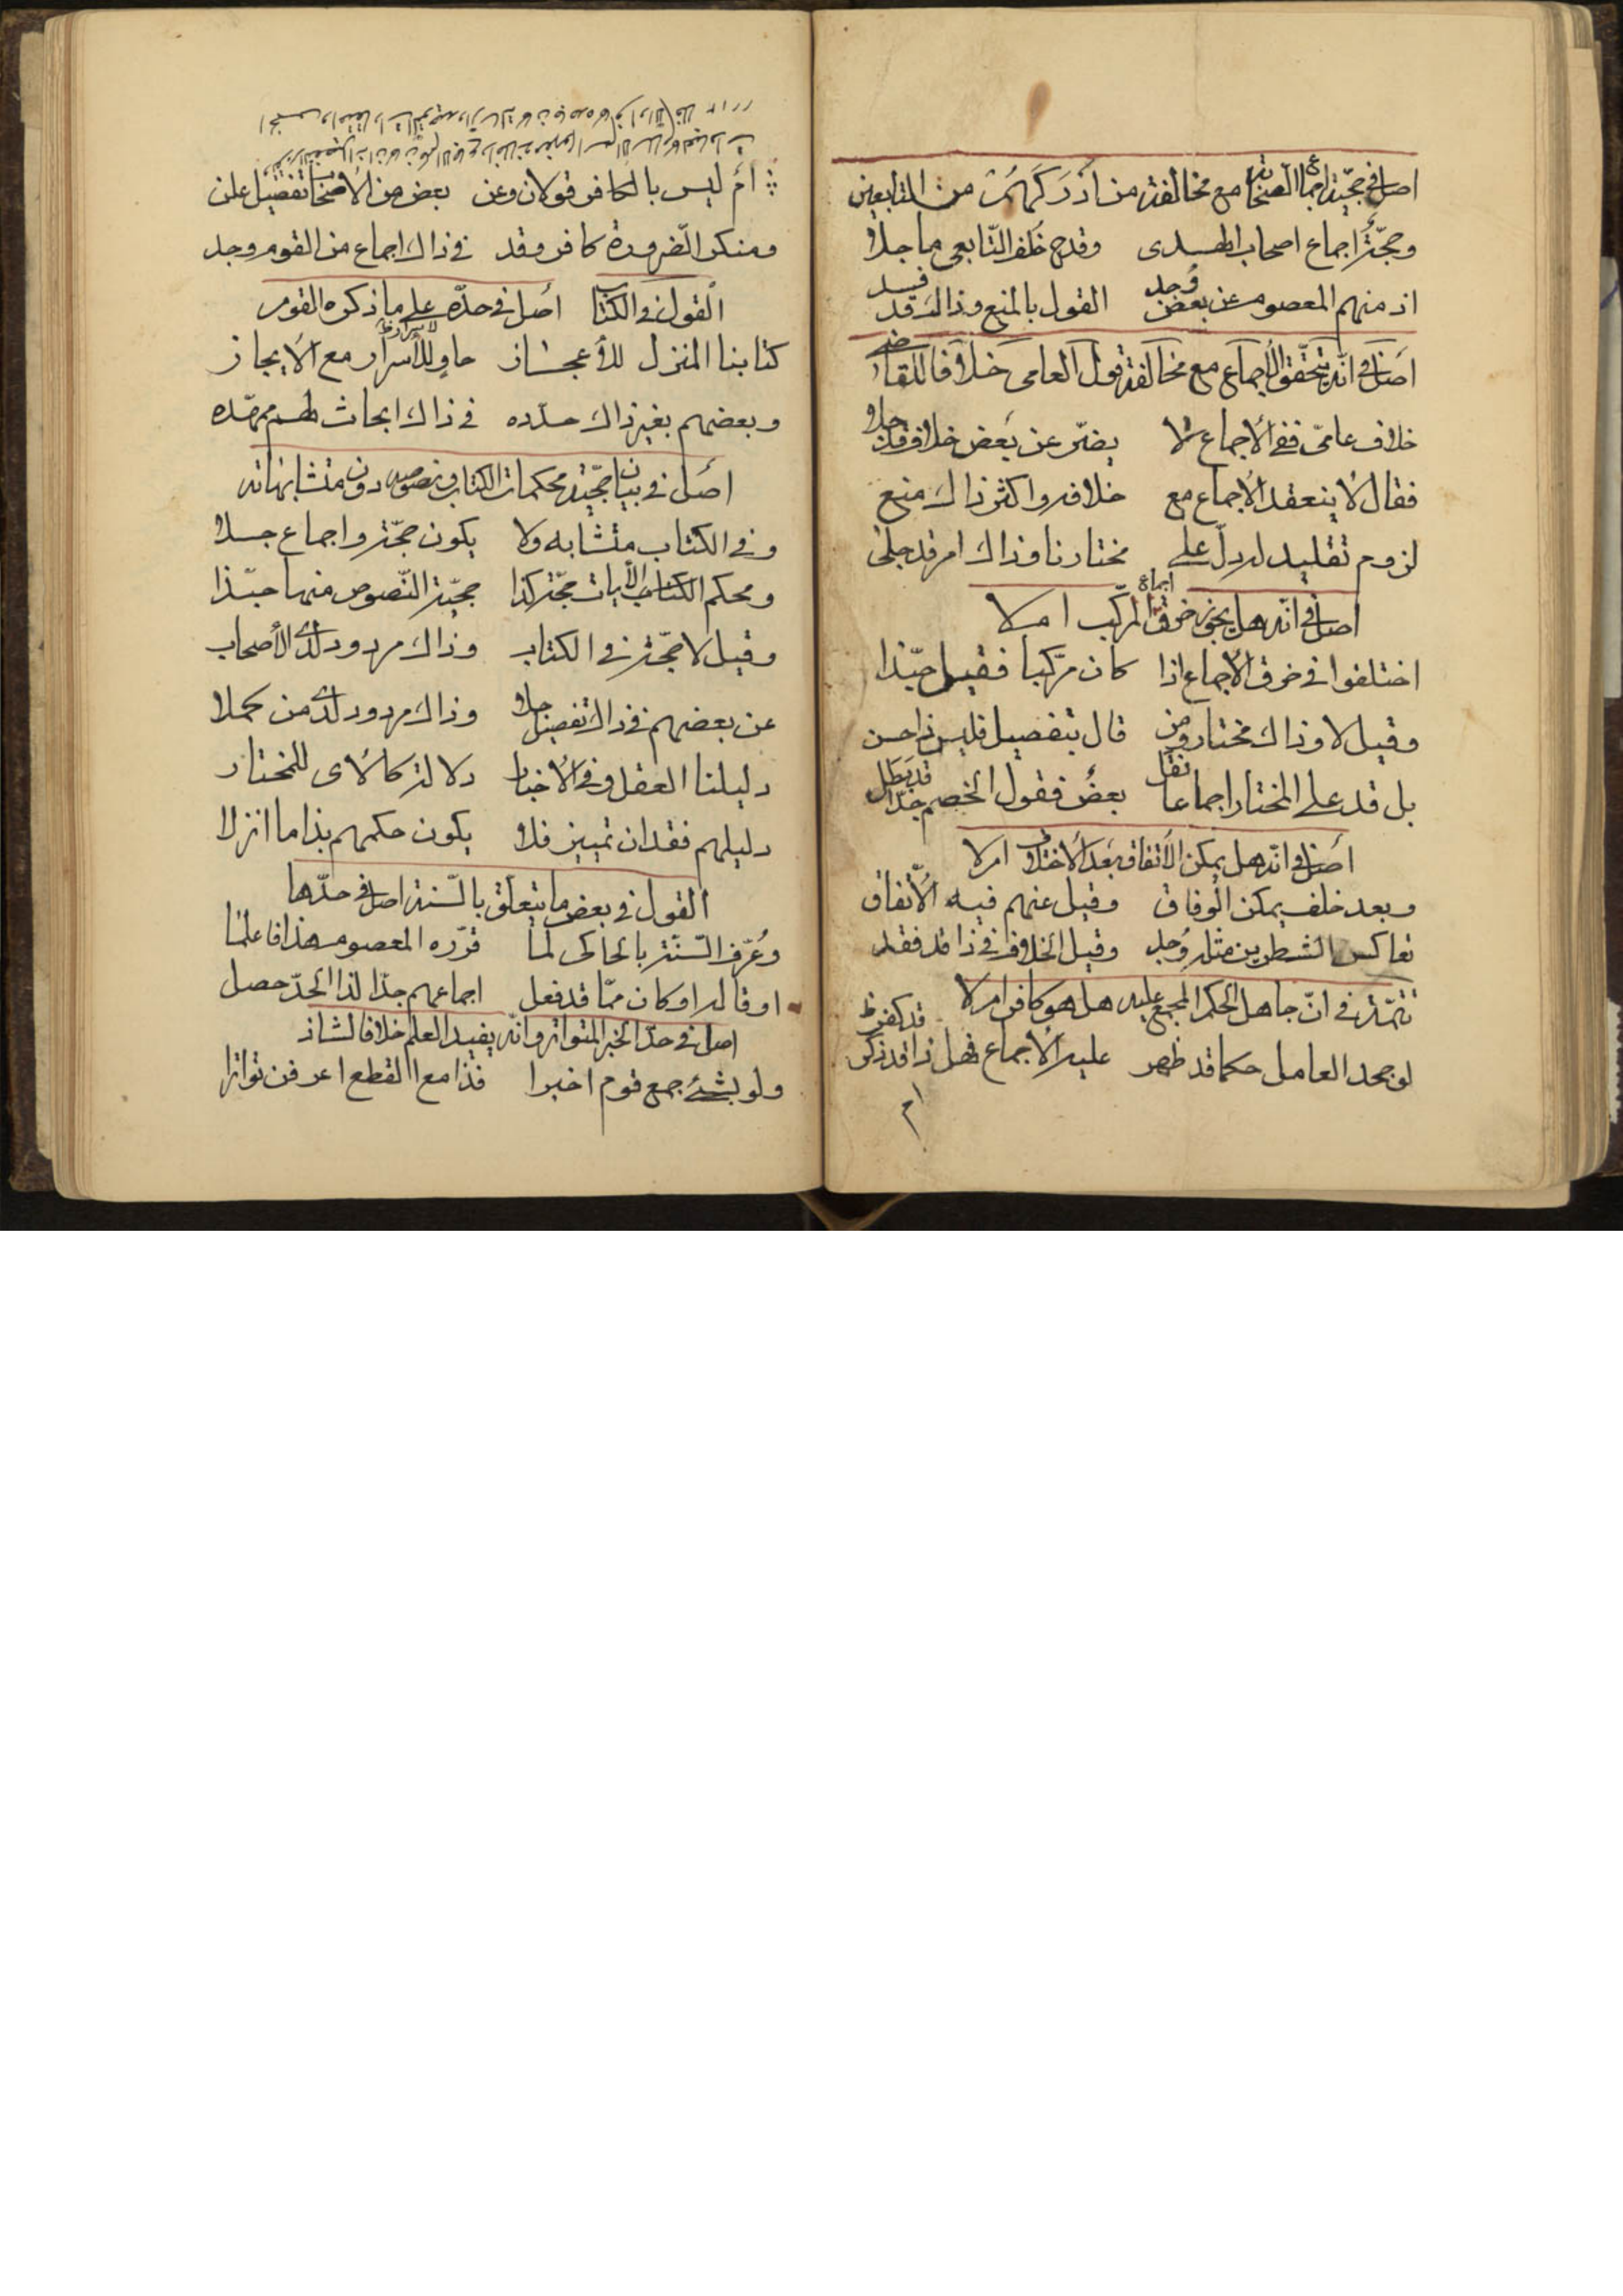 اصل فى حجّية اجماع الصحابة مع مخالفة من ادركهم من التابعين
وحجّة اجماع اصحاب الهدى وقدح خلف التّابعى ما جلا
اذ منهم المعصوم عن بعض وُجد القول بالمنع وذاك قد فسد
اصل فى انّه يتحقّق الاجماع مع مخالفة قول العامى خلافا للقاضى
خلاف عامىّ ففى الاجماع لا يضرّ عن بعض خلافه جلا
فقال لا ينعقد الاجماع مع خلافه واكثر ذاك منع
لزوم تقليد له دلّ على مختارنا وذاك امر قد جلى
اصل فى انّه هل يجوز خرق اجماع المركّب ام لا
اختلفوا فى خرق الاجماع اذا كان مركّبا فقيل حبّذا
وقيل لا وذاك مختار ومن قال بتفصيل فليس ذا حسن
بل قد على المختار اجماعا نقل بعضٌ فقول الخصم جدّا قد بطل
اصل فى انّه هل يمكن الاتّفاق بعد الاختلاف ام لا
وبعد خلف يمكن الوفاق وقيل عنهم فيه الاتّفاق
تعاكس الشطرين مثله وُجد وقيل الخلاف فى ذا قد فقد
تتمّة فى انّ جاهل الحكم المجمع عليه هل هو كافر ام لا
لو جحد العامل حكما قد ظهر عليه الاجماع فهل ذا قد كفر
ام
ام ليس بالكافر قولان وعن بعض من الاصحاب تفصيل علن
ومنكر الضّرورة كافر وقد فى ذاك اجماع من القوم وجد
القول فى الكتاب اصل فى حدّه على ما ذكره القوم
كتابنا المنزل للاعجاز حاو للأسرار مع الايجاز
وبعضهم بغير ذاك حدّده فى ذاك ابحاث لهم ممهّده
اصل فى بيان حجّية محكمات الكتاب ونصوصه دون متشابهاته
وفى الكتاب متشابه ولا يكون حجّة واجماع جلا
ومحكم الكتاب الآيات حجّة كذا حجّية النّصوص منها حبّذا
وقيل لا حجّة فى الكتاب وذاك مردود لدى الأصحاب
عن بعضهم فى ذاك تفصيل جلا وذاك مردود لدى من كملا
دليلنا العقل وفى الاخبار دلالة كالآى للمختار
دليلهم فقدان تمييز فلا يكون حكمهم بذا ما انزلا
القول فى بعض ما يتعلّق بالسّنة اصل فى حدّها
وعُرّف السّنّة بالحاكى لما قرّره المعصوم هذا فاعلما
او قاله او كان ممّا قد فعل اجماعهم جدّا لذا الحدّ حصل
اصل فى حدّ الخبر المتواتر وانّه يفيد العلم خلافا لشاذ
ولو بشئ جمع قوم اخبرا فذا مع القطع اعرفن تواترا